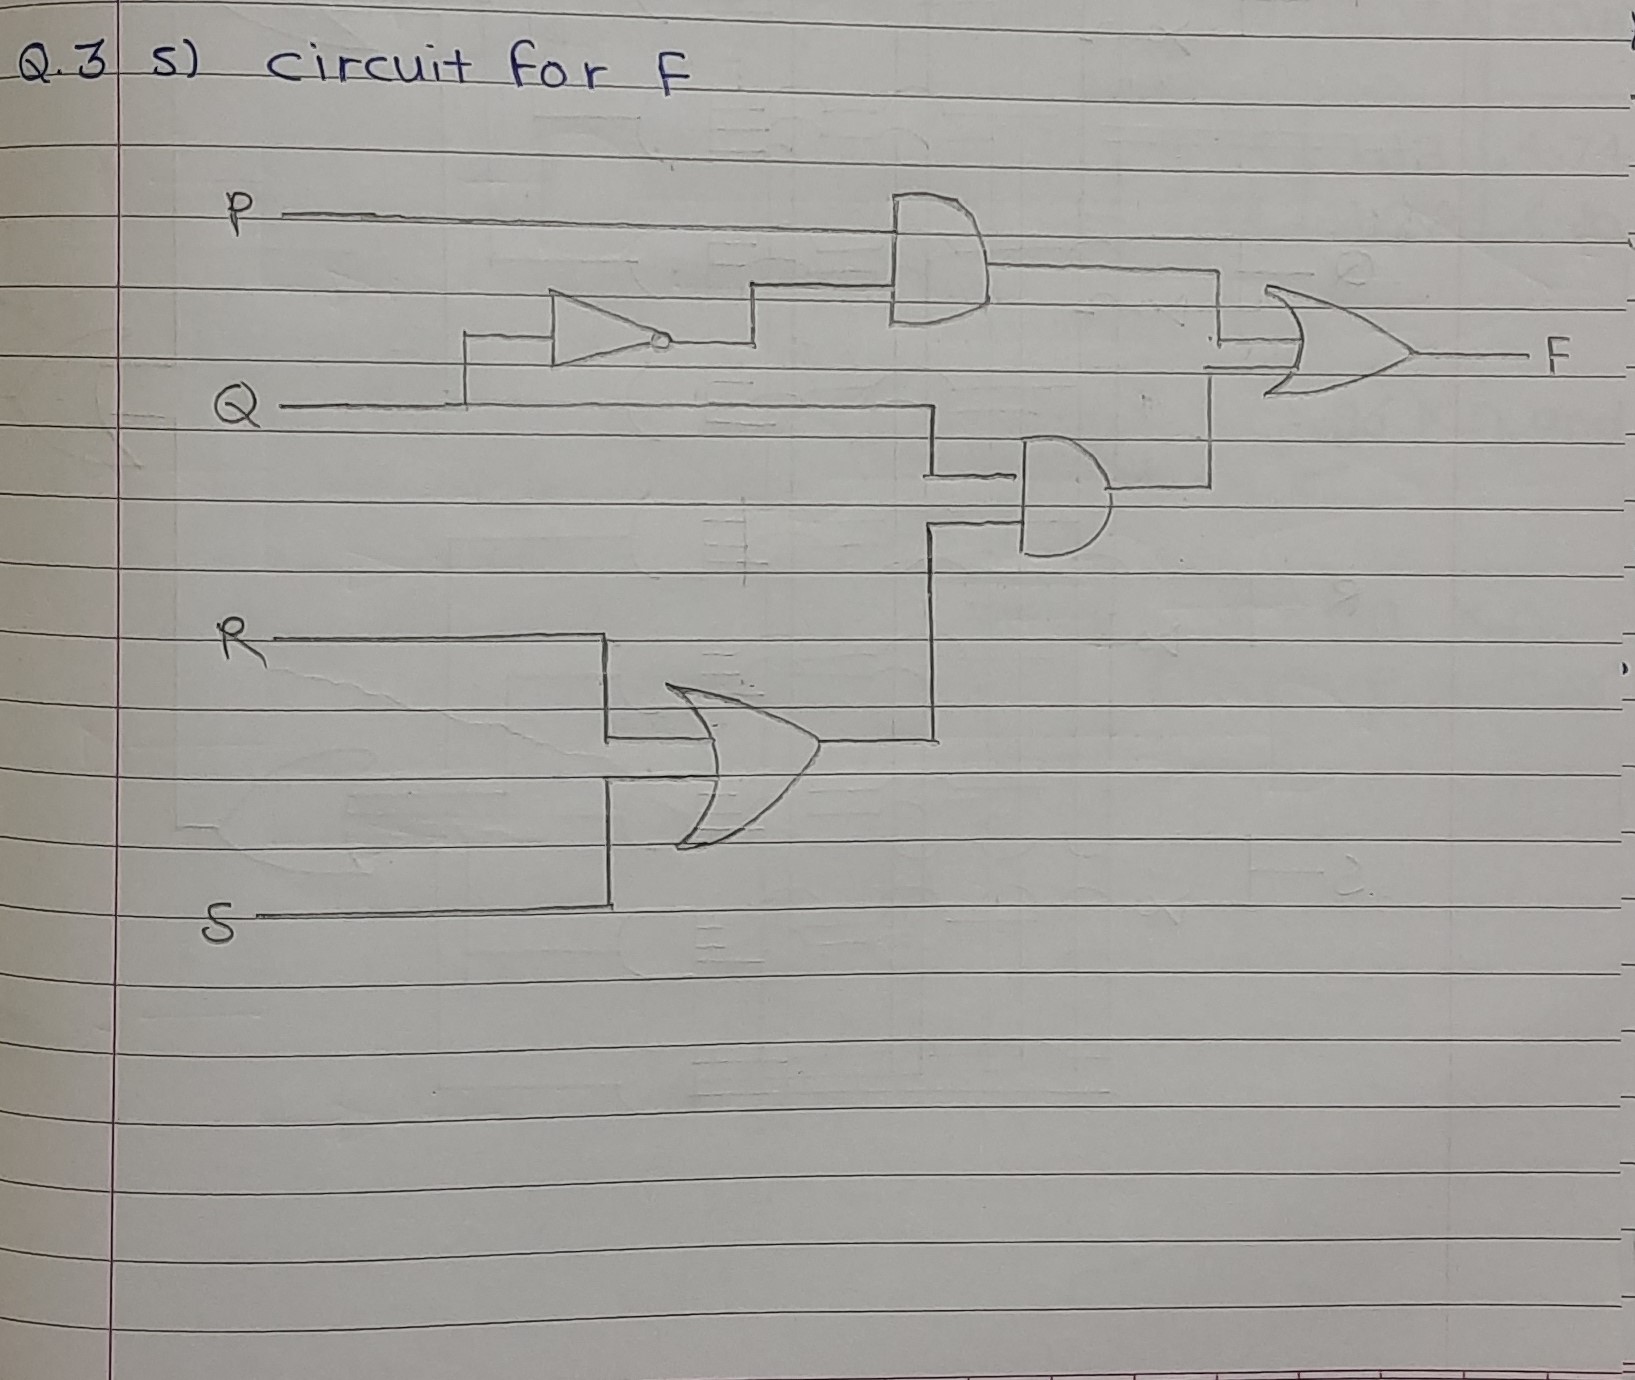 Q.3 5) circuit for F
P
F
Q
R
S